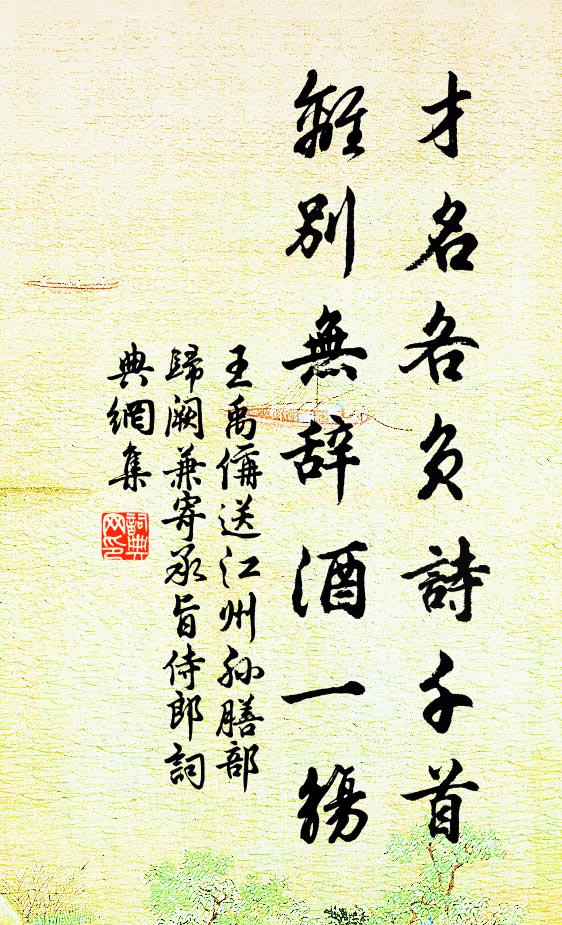 才名各負詩千首
離別無辞酒一觴
王禹偁送江州孙膳部
歸阙兼寄承旨侍郎詞
典網集
詞典
网印